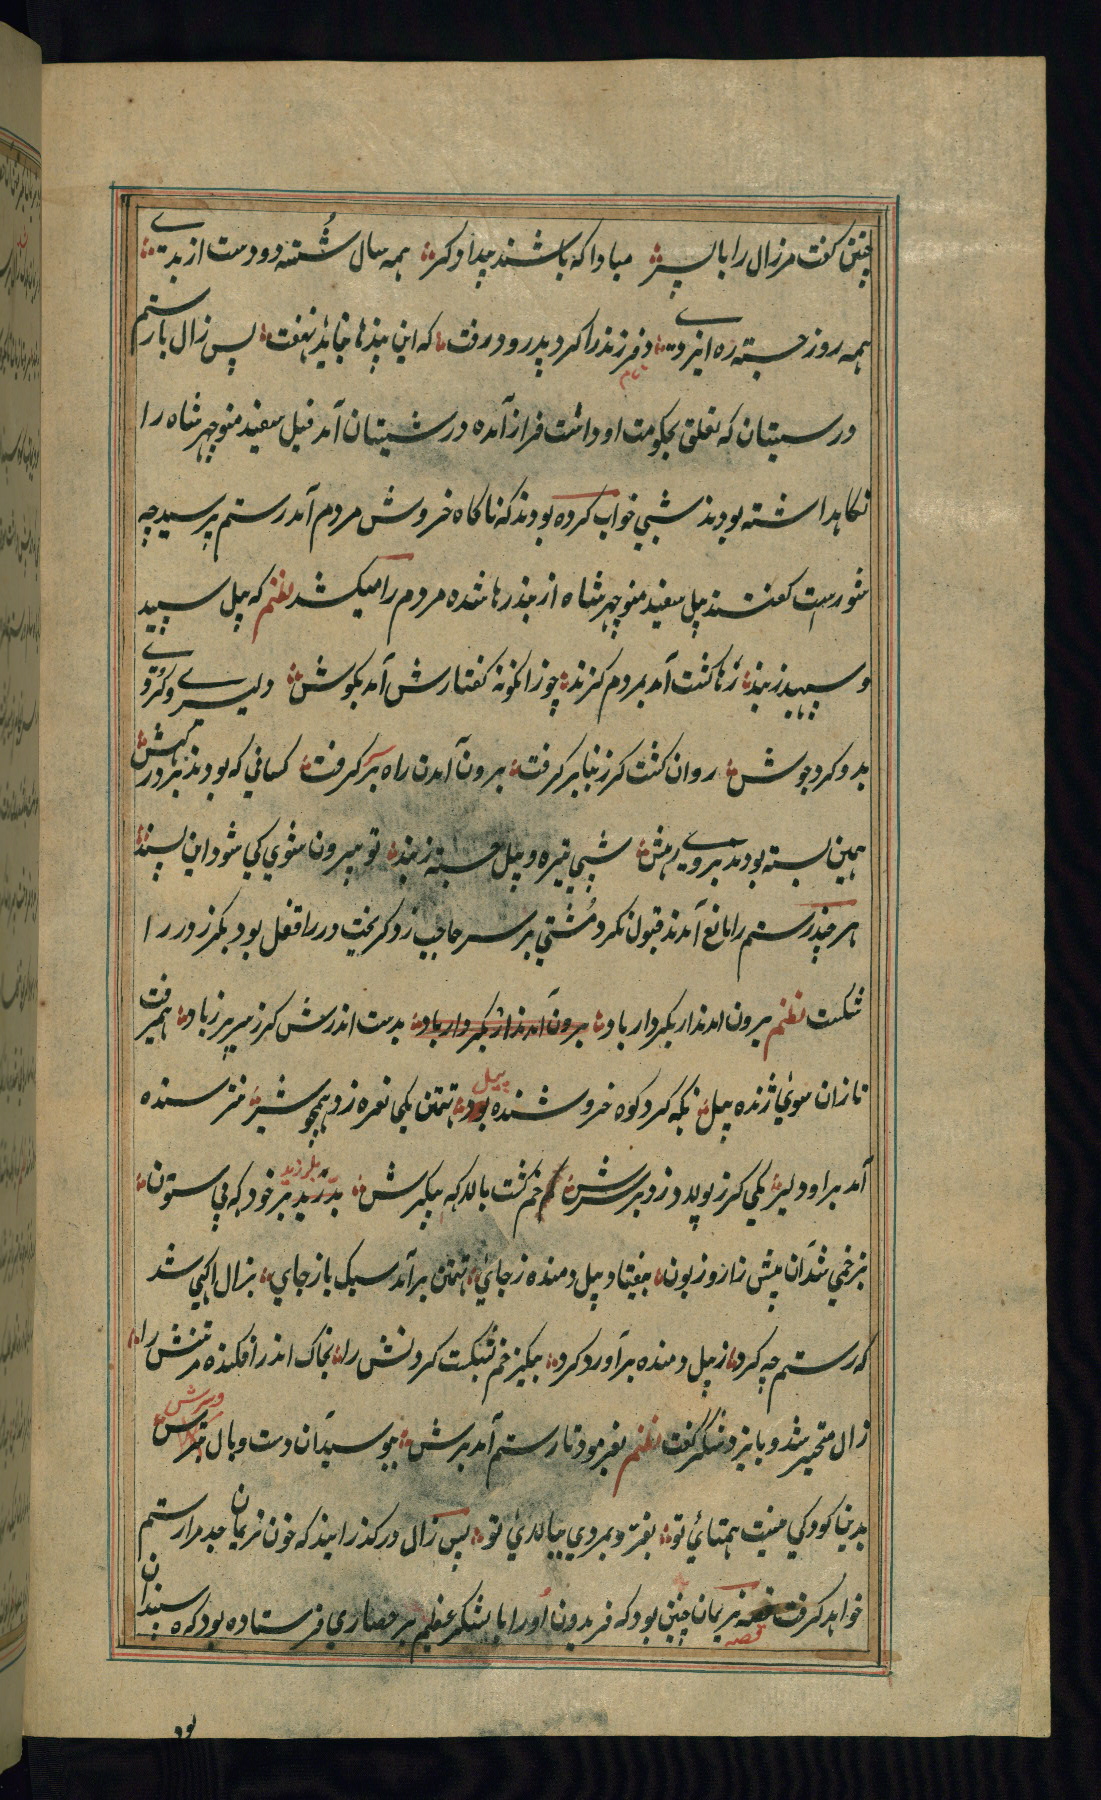 چنین گفت مرزال را با پسر مبادا که باشند بیدادگر همه سال شسته دو دست از بدی
همه روز جسته ره ایزدی دو فرزند را کرد پدرود رفت که این پندها نباید نهفت پس زال با رستم
در سیستان که تعلق بحکومت او داشت فراز آمده در شبستان آمد فیل سفید منوچهر شاه را
نگاهداشته بودند شبی خواب کرده بودند که ناگاه خروش مردم آمد رستم پرسید چه
شورست گفتند پیل سفید منوچهر شاه از بند رها شده مردم را میکشد نظم که پیل سپید
و سپهبد ز بند رها گشت آمد بمردم گزند چو زانگونه گفتارش آمد بگوش دلیری و گردی
بدو کرد جوش روان گشت گرز نیا بر گرفت برون آمدن راه بر گرفت کسانی که بودند بر درگهش
همین بسته بودند بر وی رهش شبی تیره و پیل جسته ز بند تو بیرون شوی کی شود این پسند
هر چند رستم را مانع آمدند قبول نکرد مشتی بر سر حاجب زد و گریخت در را قفل بود بگرز در را
شکست نظم برون آمد از بکردار باد برون آمد از بکردار باد بدست اندرش گرز سر پر ز باد همیرفت
تازان سوی ژنده پیل نگه کرد کوه خروشنده بود پیل تهمتن یکی نعره زد همچو شیر نترسنده
آمد بر او دلیر یکی گرز پولاد زد بر سرش که خم گشت بالا که پیکرش بلرزید بر خود که بی ستون
بزخمی شد آن پیش زار و زبون بیفتاد پیل دمنده ز جای تهمتن بر آمد سبک باز جای بزال آگهی شد
که رستم چه کرد از پیل دمنده بر آورد کرد بیک زخم بشکست گردنش را بخاک اندر افکنده مر تنش را
زال متحیر شد و با یزد شکر گفت نظم بفرمود تا رستم آمد برش ببوسید آن دست و یال و سرش
بدینا کودکی نیست همتای تو بفر و بمردی ببالای تو پس زال در گذرانید که خون نریمان جد مرا رستم
خواهد گرفت قصه نریمان چنین بود که فریدون او را با لشکر عظیم بر حصاری فرستاده بود که سپندان
بود